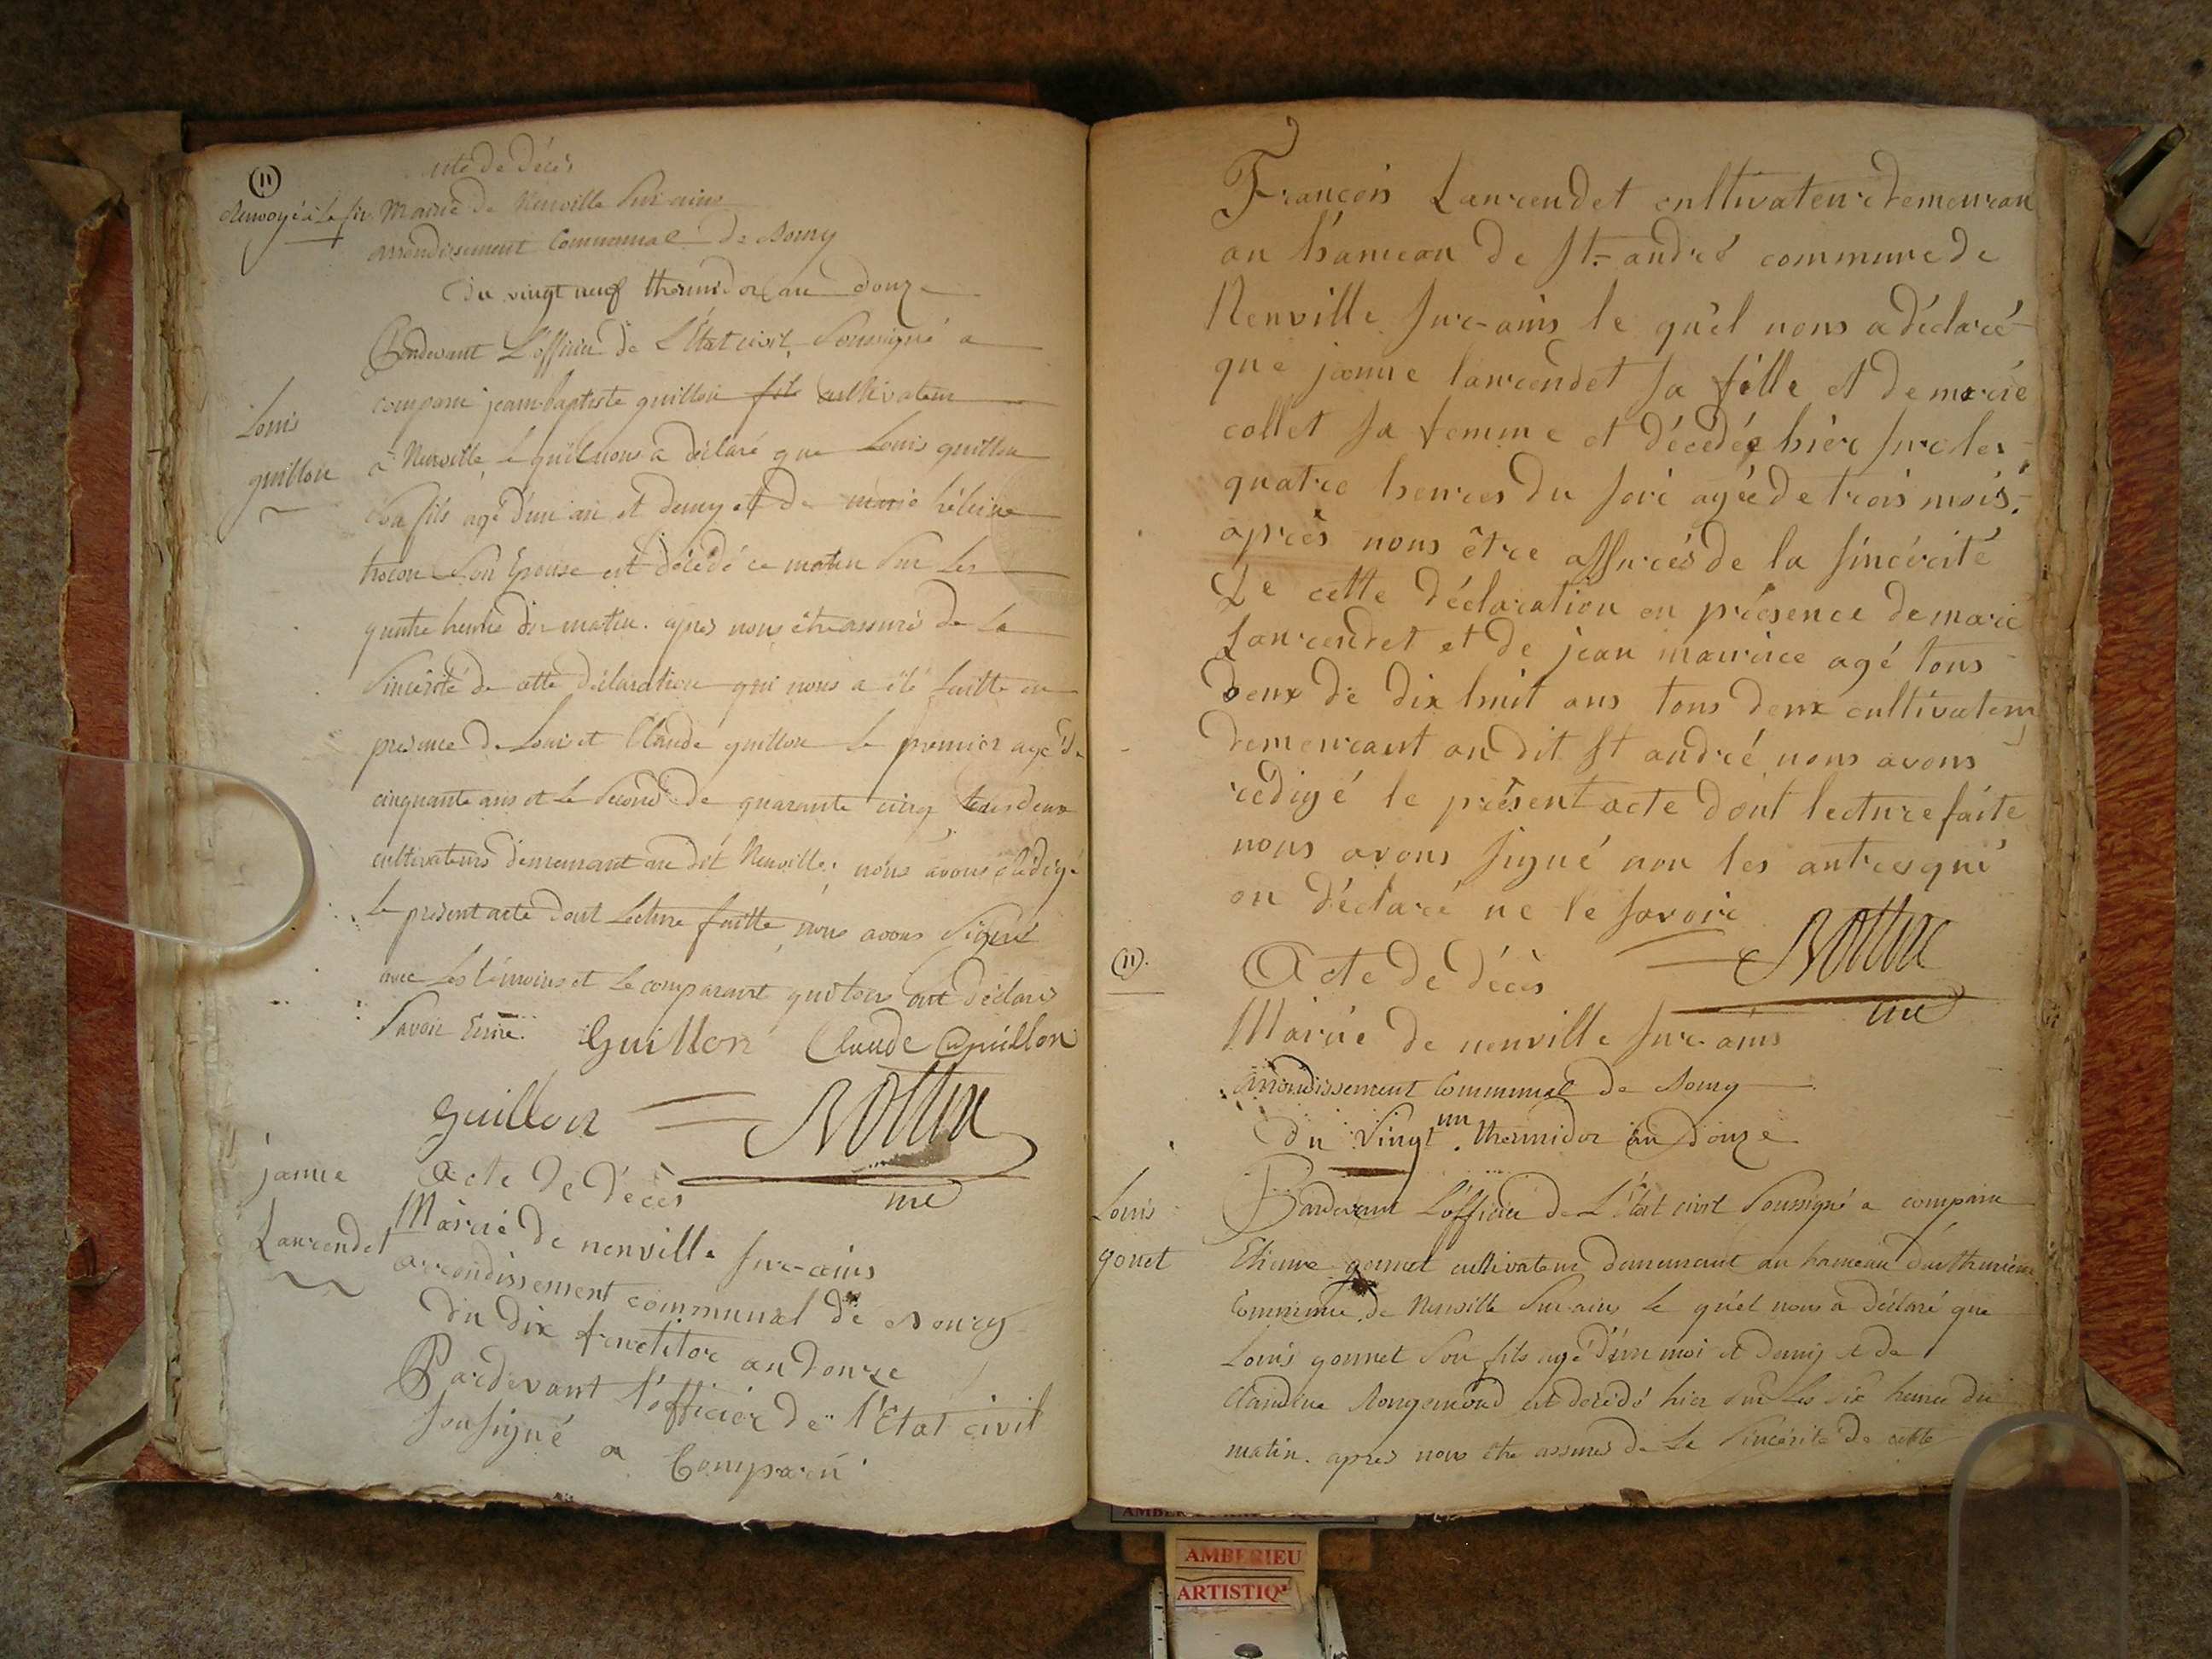 (11)
acte de décès
Renvoyé à la fin
Mairie de Neuville Sur ains
arrondissement Communal de Bourg
du vingt neuf thermidor an douze
Pardevant L'officier de L'état civil Soussigné a
comparu jean-baptiste guillon fils cultivateur
Louis
guillon
à Neuville le quel nous a déclaré que Louis guillon
Son fils agé d'un an et demy et de marie héleine
Son Epouse est décédé ce matin Sur Les
quatre heures du matin. apres nous être assuré de La
Sincérité de cette déclaration qui nous a été faitte en
presence de Louis et Claude guillon le premier agé de
cinquante ans et le Second de quarante cinq tous deux
cultivateurs demeurant au dit Neuville. nous avons rédigé
le present acte dont Lecture faitte nous avons Signé
avec Les témoins et Le comparant qui tous ont déclaré
Savoir Ecrire. Guillon Claude Guillon
guillon
janne
Laurendet
Acte de décès
Mairie de neuville sur-ains
arrondissement communal de Bourg
du dix fructitor an douze
Pardevant l'officier de l'Etat civil
sousigné a Comparu
François Laurendet cultivateur demeuran
au hameau de st-andré commune de
Neuville sur-ains le quel nous a déclaré
que janne laurendet sa fille et de marie
collet sa femme et décédée hièr sur les
quatre heures du soir agée de trois mois.
après nous être assurés de la sincérité
de cette déclaration en présence de marie
Laurendet et de jean maurice agé tous
deux de dix huit ans tous deux cultivateurs
demeurant au dit st andré nous avons
rédigé le présent acte dont lecture faite
nous avons signé non les autres qui
on déclaré ne le savoir
(11).
Acte de décès
Mairie de neuville sur-ains
arrondissement Communal de Bourg
du Vingt un thermidor an douze
Louis
gonet
Pardevant L'officier de L'État civil Soussigné a comparu
Etienne gonnet cultivateur demeurant au hameau
Commune de Neuville Sur-ains le quel nous a déclaré que
Louis gonnet Son fils agé d'un moi et demy et de
Claudine Rougemond est décédé hier Sur Les six heures du
matin. apres nous être assurés de La Sincérité de cette
AMBERIEU
ARTISTIQ